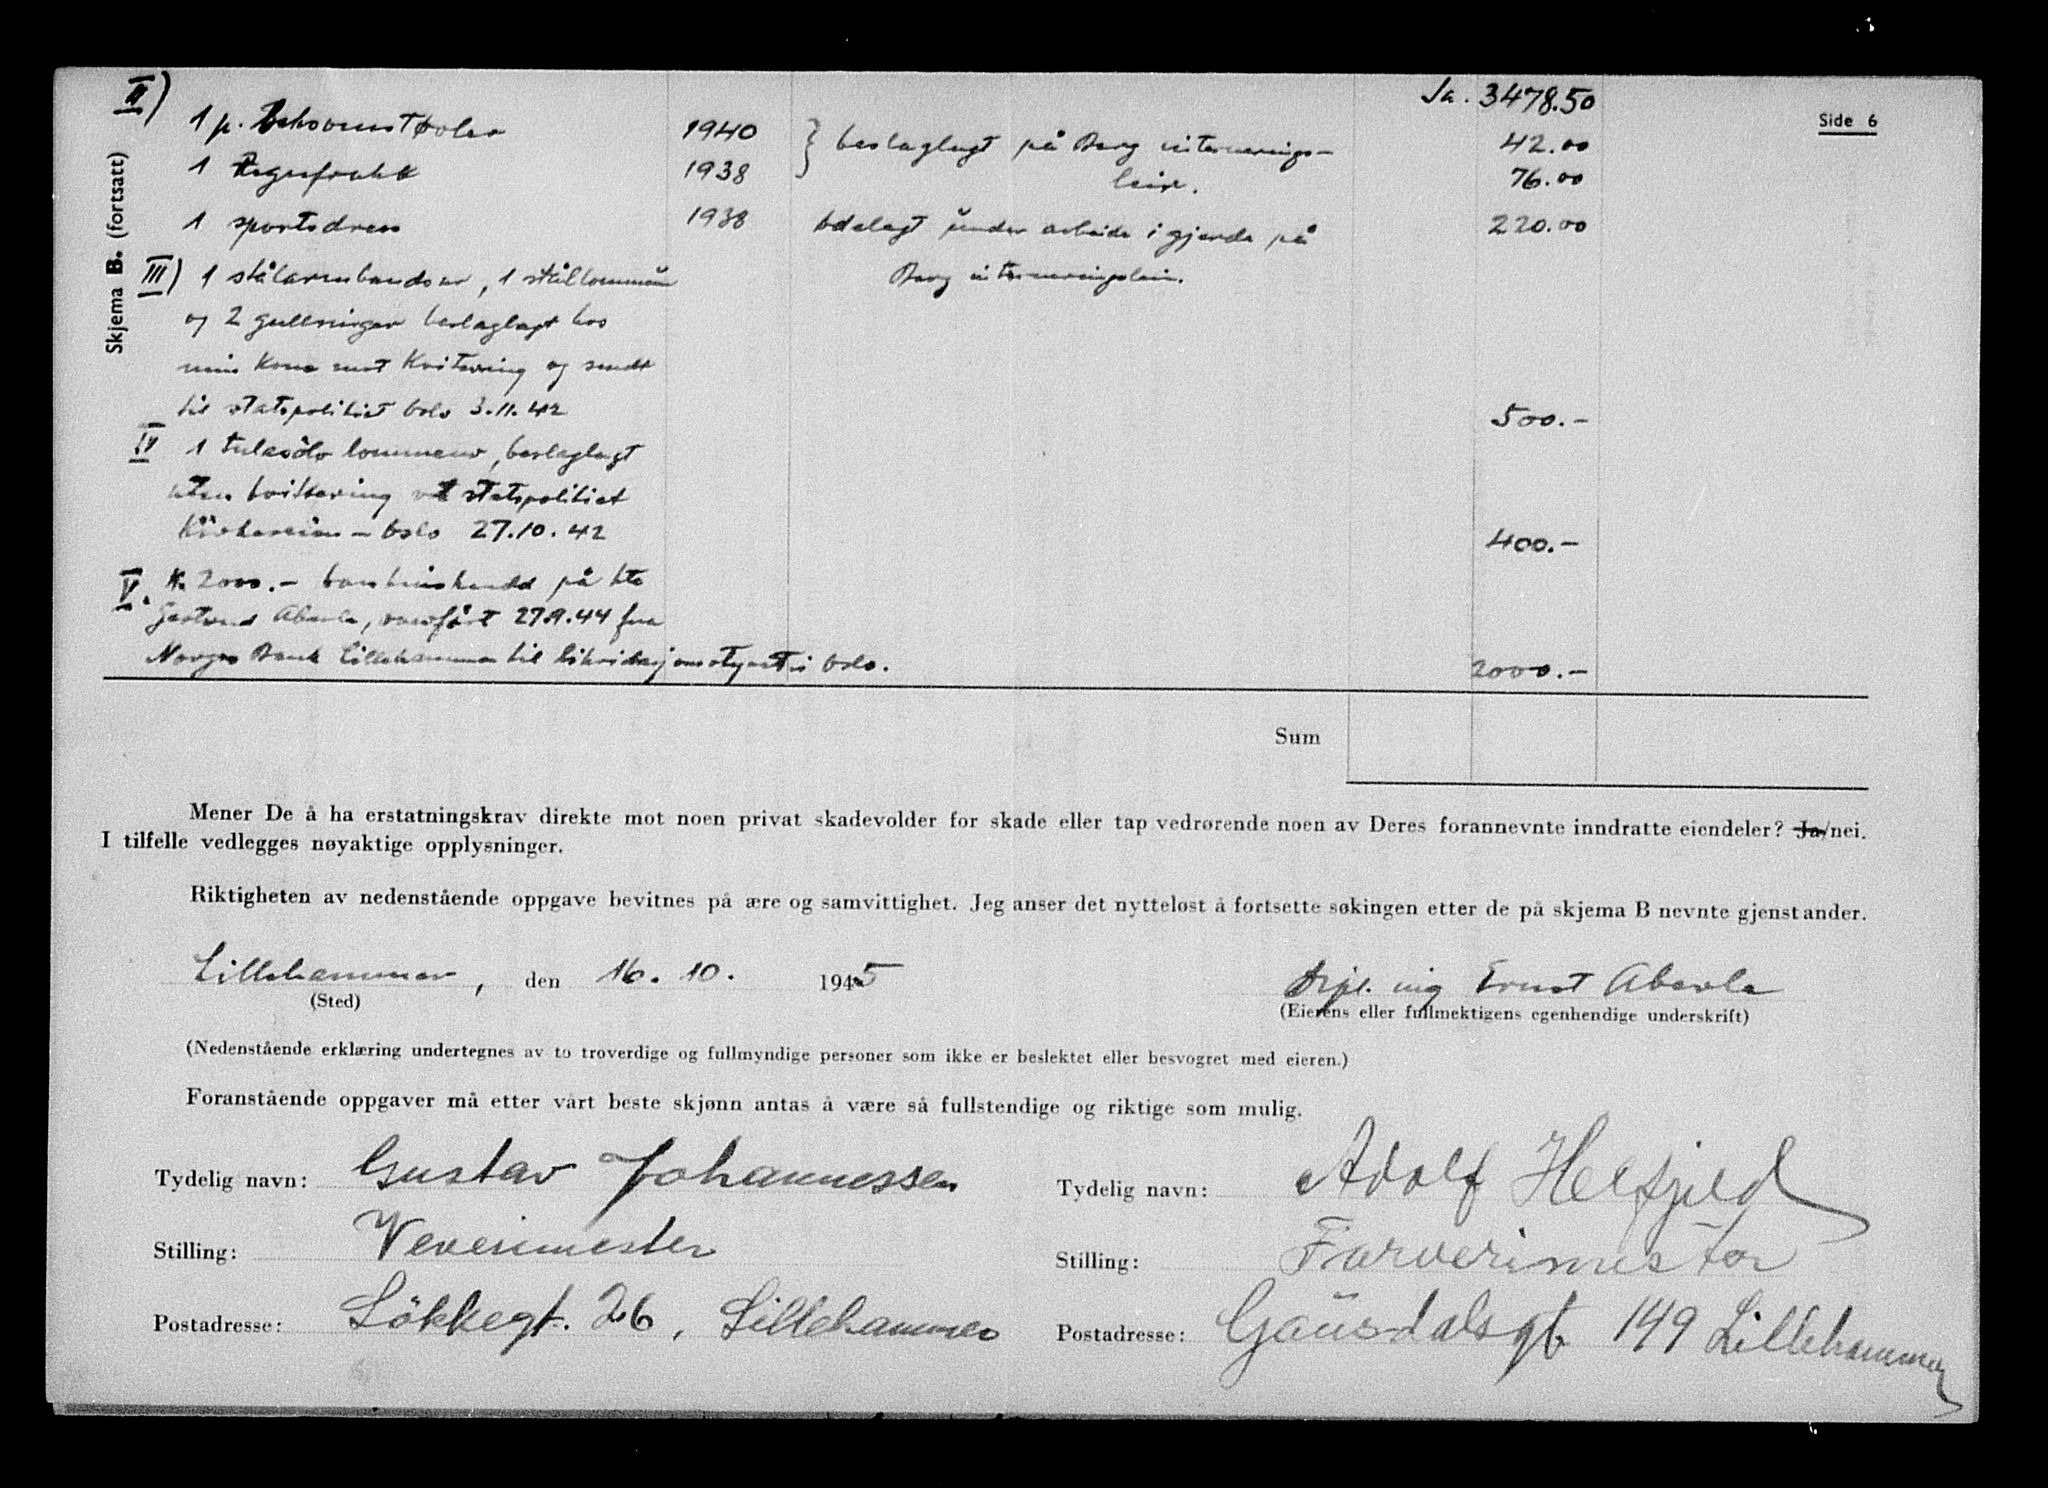 Side 6
Skjema B. (fortsatt)
Ia. 3478.50
II) 1 p. beksømstøvler 1940 } beslaglagt på Berg internerings- 42.00
1 Regnfrakk 1938 leir. 76.00
1 sportsdress 1938 ödelagt under arbeide i gjerde på 220.00
Berg interneringsleir.
III) 1 stålarmbandsur, 1 stållommeur
og 2 gullringer beslaglagt hos
min kone mot kvitering og sendt
til statspolitiet Oslo 3.11.42 500.-
IV 1 tulasölv lommeur, beslaglagt
uten kvittering ved statspolitiet
Kirkeveien - Oslo 27.10.42 400.-
V. K. 2000.- bankinnskudd på kto
Gertrud Aberle, overført 27.9.44 fra
Norges Bank Lillehammer til likvidasjonsstyret i Oslo. 2000.-
Sum
Mener De å ha erstatningskrav direkte mot noen privat skadevolder for skade eller tap vedrørende noen av Deres forannevnte inndratte eiendeler? Ja/nei.
I tilfelle vedlegges nøyaktige opplysninger.
Riktigheten av nedenstående oppgave bevitnes på ære og samvittighet. Jeg anser det nytteløst å fortsette søkingen etter de på skjema B nevnte gjenstander.
Lillehammer, den 16. 10. 1945 Dipl. ing Ernst Aberle
(Sted) (Eierens eller fullmektigens egenhendige underskrift)
(Nedenstående erklæring undertegnes av to troverdige og fullmyndige personer som ikke er beslektet eller besvogret med eieren.)
Foranstående oppgaver må etter vårt beste skjønn antas å være så fullstendige og riktige som mulig.
Tydelig navn: Gustav Johannessen Tydelig navn: Adolf Helfjeld
Stilling: Veverimester Stilling: Farverimester
Postadresse: Lökkegt. 26, Lillehammer Postadresse: Gausdalsgt 149 Lillehammer